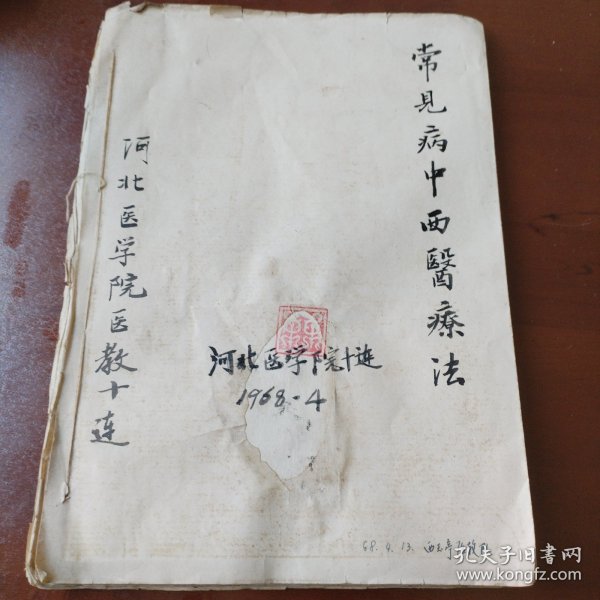 常見病中西醫療法
河北医学院医教十连
河北医学院十连
1968-4
68.4.13.
孔夫子旧书网
www.kongfz.com